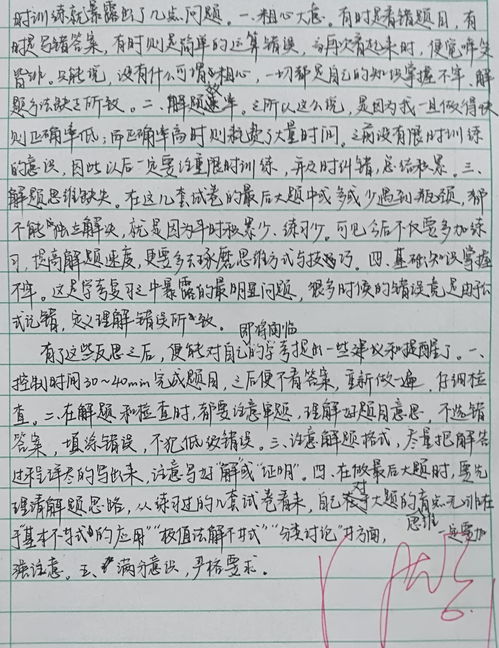 时训练就暴露出了几点问题。一、粗心大意。有时是看错题目，有
时是写错答案，有时则是简单的运算错误，当再次看起来时，便觉啼笑
皆非。只能说，没有什么可谓粗心，一切都是自己的知识掌握不牢、解
题方法缺乏所致。二、解题效率。之所以这么说，是因为我一旦做得快
则正确率低；而正确率高时则耗费了大量时间。之前没有限时训练
的意识，因此以后一定要注重限时训练，并及时纠错，总结积累。三、
解题思维缺失。在这几套试卷的最后大题中或多或少遇到瓶颈，都
不能独立解决，就是因为平时积累少、练习少。可见今后不仅要多加练
习，提高解题速度，更要多去琢磨思维方式与技巧。四、基础知识掌握
不牢。这是学考复习之中暴露的最明显问题，很多时候的错误竟是由于公
式记错，定义理解错误所致。
即将面临
有了这些反思之后，便能对自己的学考提出一些建议和提醒了。一、
控制时间30~40min完成题目，之后便不看答案，重新做一遍，仔细检
查。二、在解题和检查时，都要注意审题，理解好题目意思，不选错
答案，填涂错误，不犯低级错误。三、注意解题格式，尽量把解答
过程详尽的写出来，注意写好“解”或“证明”。四、在做最后大题时，要先
理清解题思路，从练习过的几套试卷看来，自己对大题的盲点无非在
于“基本不等式的应用”“极值法解不等式”“分类讨论”等方面，
思维 还要加
强注意。五、满分意识，严格要求。